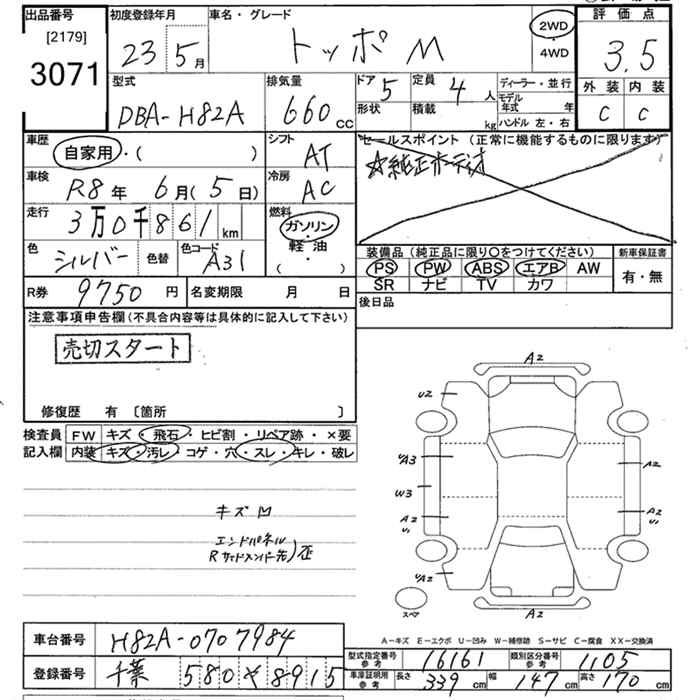 出品番号
[2179]
3071
初度登録年月
23 5月
車名・グレード
トッポ M
2WD
・
4WD
評価点
3.5
外装 内装
C C
型式
DBA-H82A
排気量
660cc
ドア 5
形状
定員 4人
積載 kg
ディーラー・並行
モデル年式 年
ハンドル 左・右
車歴
自家用・( )
シフト
AT
セールスポイント (正常に機能するものに限ります)
☆純正オーディオ
車検
R8年 6月(5日)
冷房
AC
走行
3万0千861km
燃料
ガソリン
・
軽油
( ・ )
色
シルバー
色替
色コード
A31
装備品 (純正品に限り○をつけてください)
PS PW ABS エアB AW
SR ナビ TV カワ
新車保証書
有・無
R券 9750円
名変期限 月 日
後日品
注意事項申告欄(不具合内容等は具体的に記入して下さい)
売切スタート
修復歴 有 〔箇所 〕
検査員記入欄
FW キズ・飛石・ヒビ割・リペア跡・×要
内装 キズ・汚レ・コゲ・穴・スレ・キレ・破レ
キズ凹
エンドパネル
Rサイドメンバー先)歪
A2
U2
UA3
A2
W3
A2
U1
A2
U1
UA2
スペア
A2
A-キズ E-エクボ U-凹み W-補修跡 S-サビ C-腐食 XX-交換済
車台番号
H82A-0707984
登録番号
千葉 580 そ 8915
型式指定番号
参考
16161
類別区分番号
参考
1105
車庫証明用
参考
長さ 339cm 幅 147cm 高さ 170cm